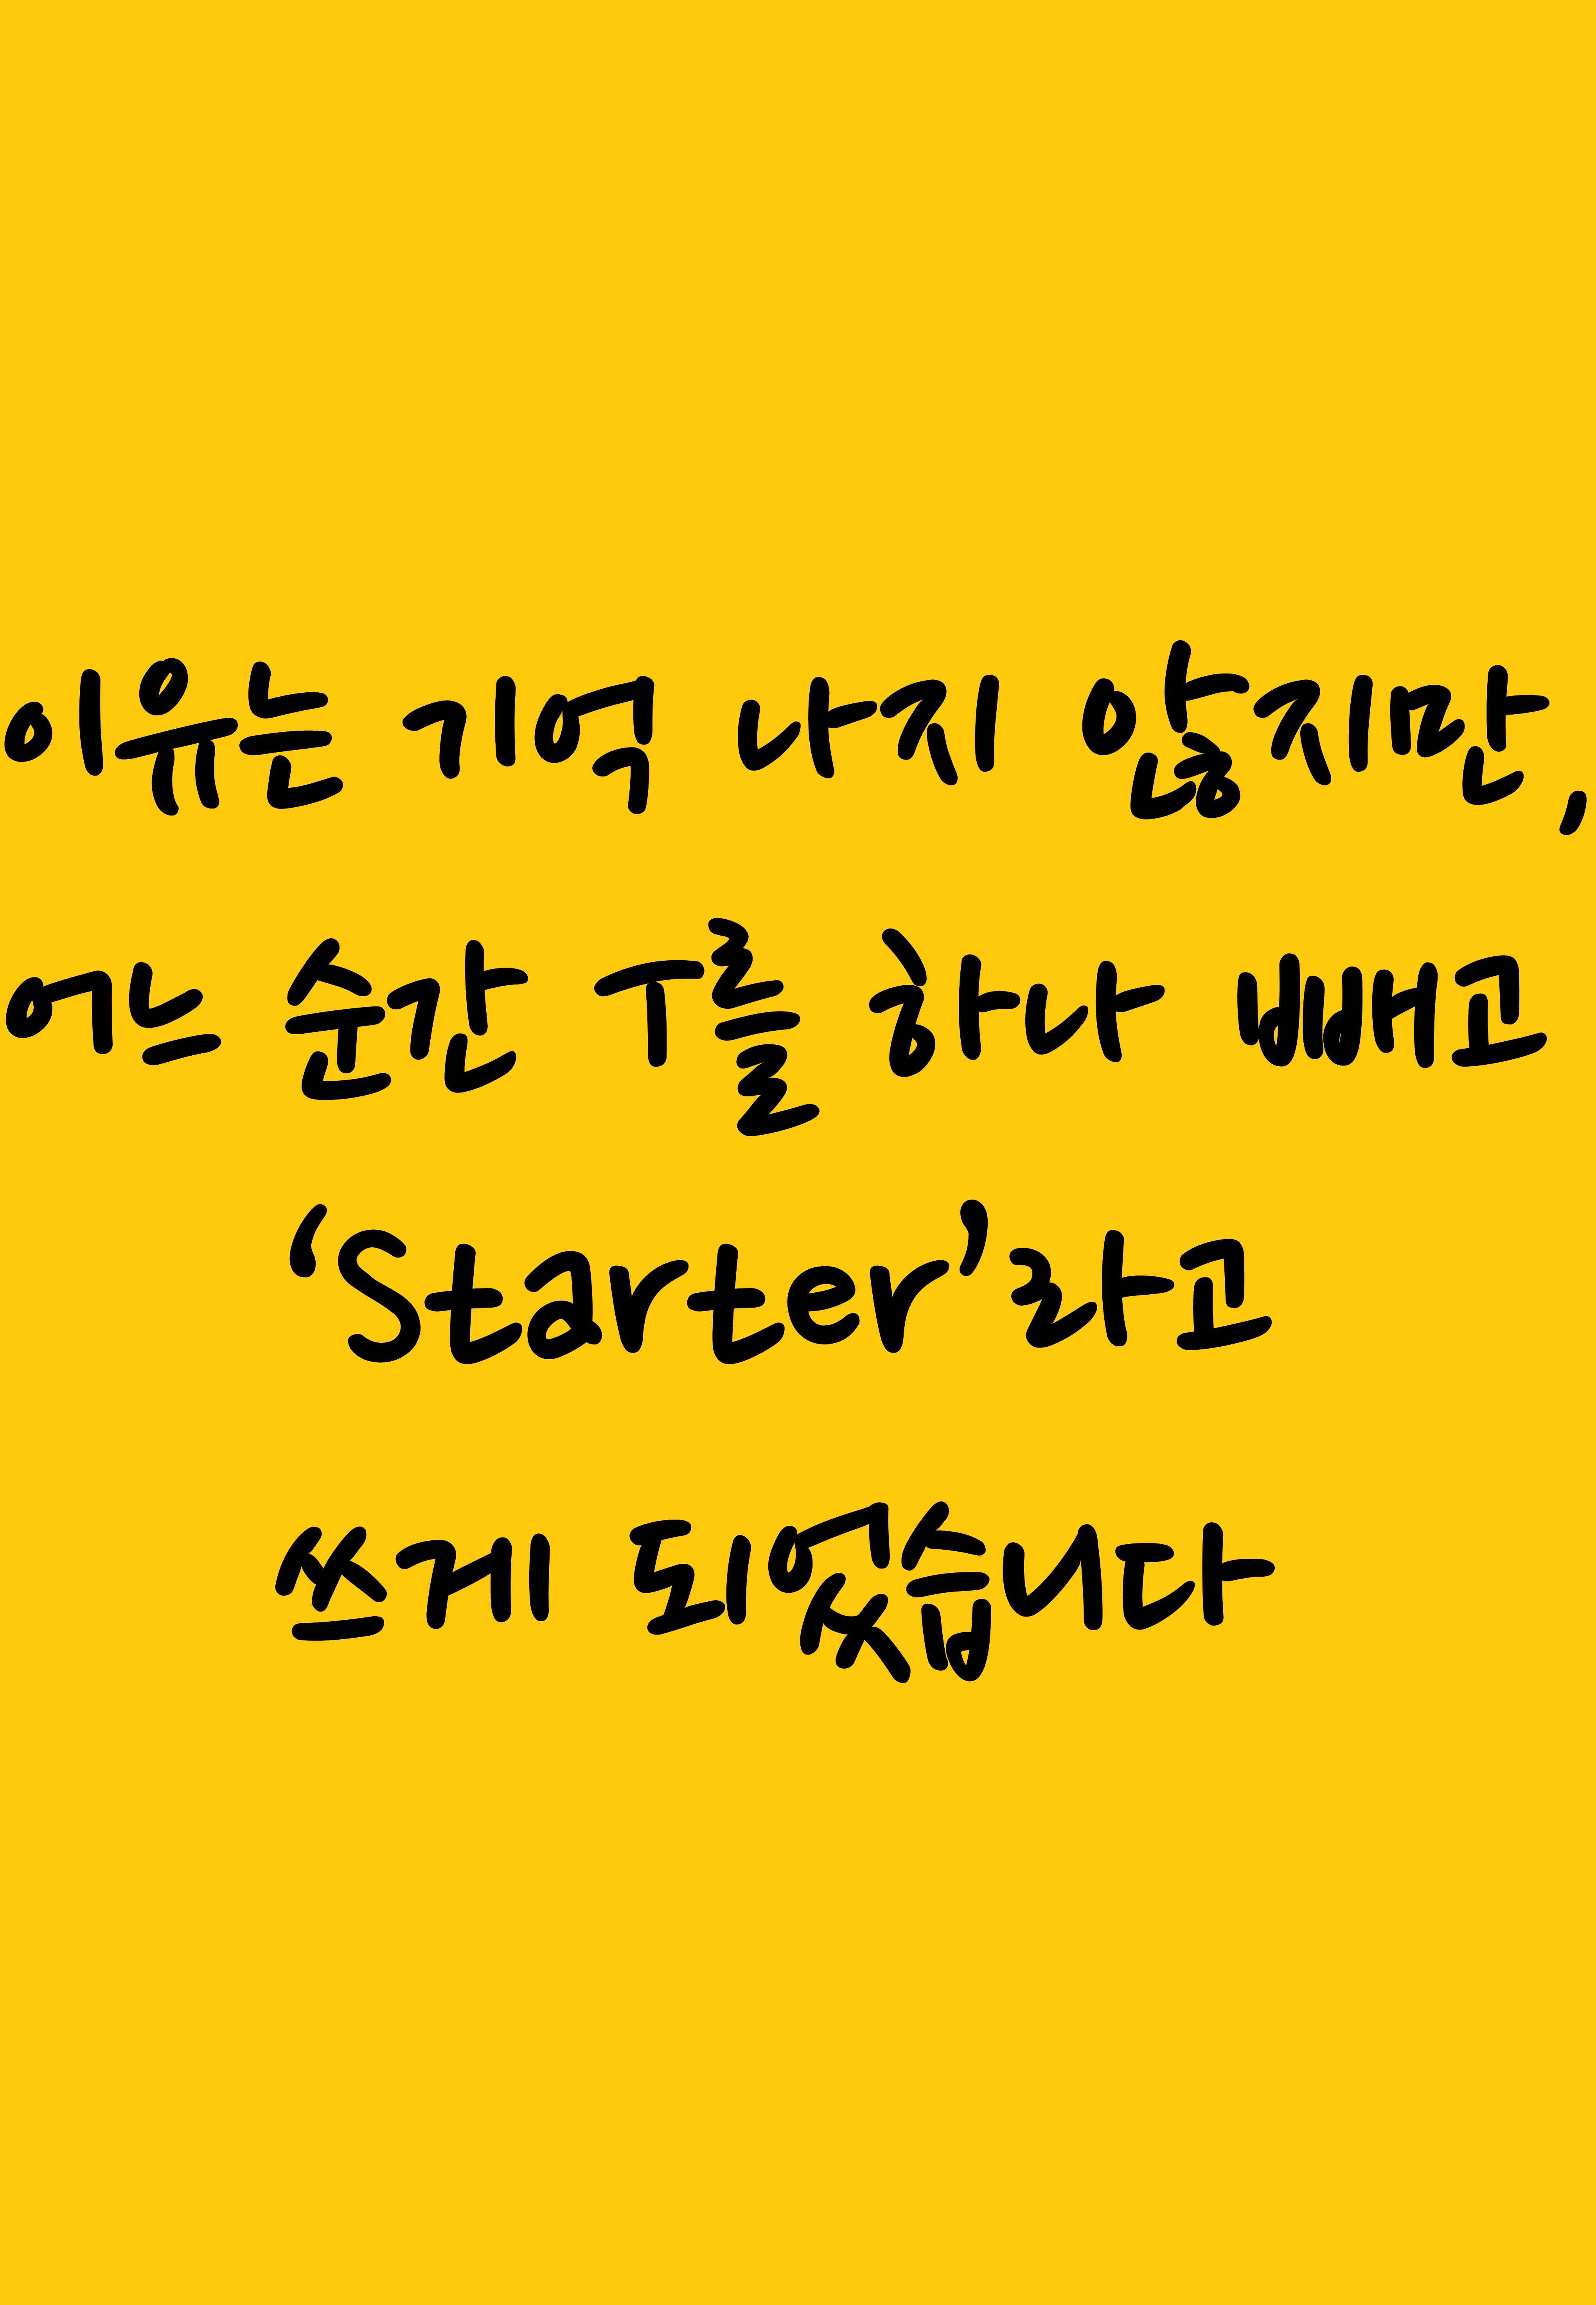 이유는 기억 나지 않지만,
어느 순간 T를 하나 빼고
‘Starter’라고
쓰게 되었습니다